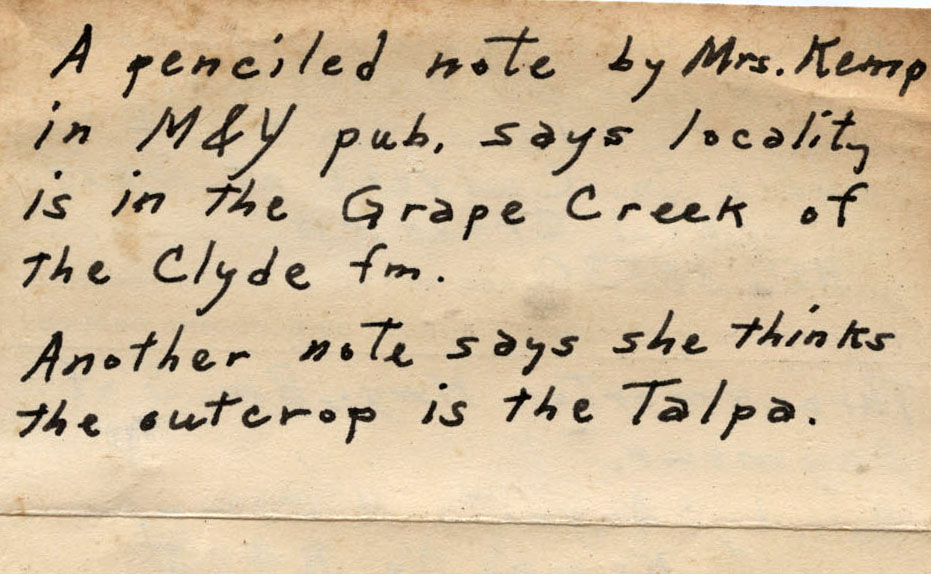 A penciled note by Mrs. Kemp
in M&Y pub, says locality
is in the Grape Creek of
the Clyde fm.
Another note says she thinks
the outcrop is the Talpa.